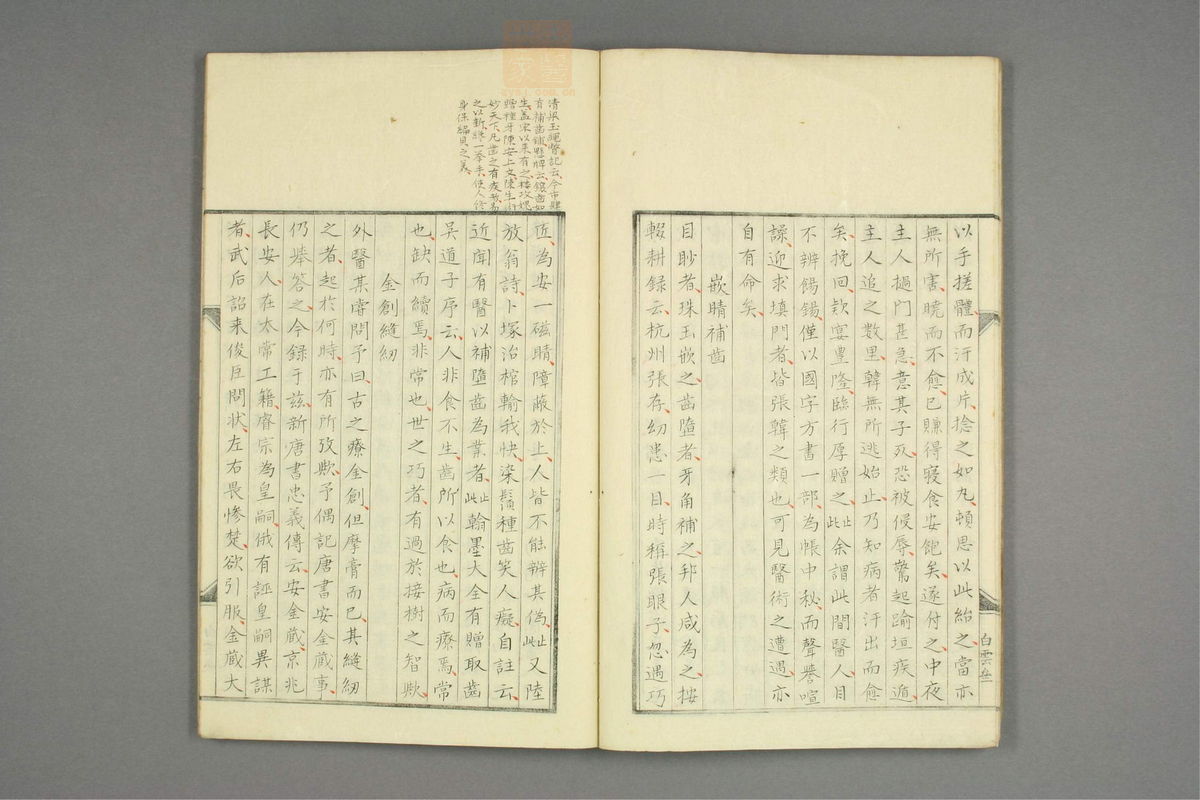 以手搓體而汗成片捻之如丸頓思以此紿之當亦
無所害曉而不愈已賺得寢食安飽矣遂付之中夜
主人撾門甚急意其子死恐被侵辱驚起踰垣疾遁
主人追之數里韓無所逃始止乃知病者汗出而愈
矣挽回欵宴豊隆臨行厚贈之此止余謂此間醫人目
不辨餳錫僅以國字方書一部為帳中秘而聲譽喧
譟迎求填門者皆張韓之類也可見醫術之遭遇亦
自有命矣
嵌睛補齒
目眇者珠玉嵌之齒墮者牙角補之邦人咸為之按
輟耕録云杭州張存幼患一目時稱張眼子忽遇巧
白雲
清梁玉繩瞥記云今市肆
有補齒鋪懸牌云鑲齒如
生蓋宋以来有之樓攻媿
贈種牙陳安上文陳生術
妙天下凡齒之有疾者易
之以新纔一舉手使人終
身保編貝之美
匠為安一磁睛障蔽於上人皆不能辨其偽此止又陸
放翁詩卜塚治棺輸我快染鬚種齒笑人癡自註云
近聞有醫以補墮齒為業者此止翰墨大全有贈取齒
吳道子序云人非食不生齒所以食也病而療焉常
也缺而續焉非常也世之巧者有過於接樹之智歟
金創縫紉
外醫某嘗問予曰古之療金創但摩膏而已其縫紉
之者起於何時亦有所攷歟予偶記唐書安金蔵事
仍舉答之今録于茲新唐書忠義傳云安金蔵京兆
長安人在太常工籍睿宗為皇嗣俄有誣皇嗣異謀
者武后詔来俊臣問狀左右畏慘楚欲引服金蔵大